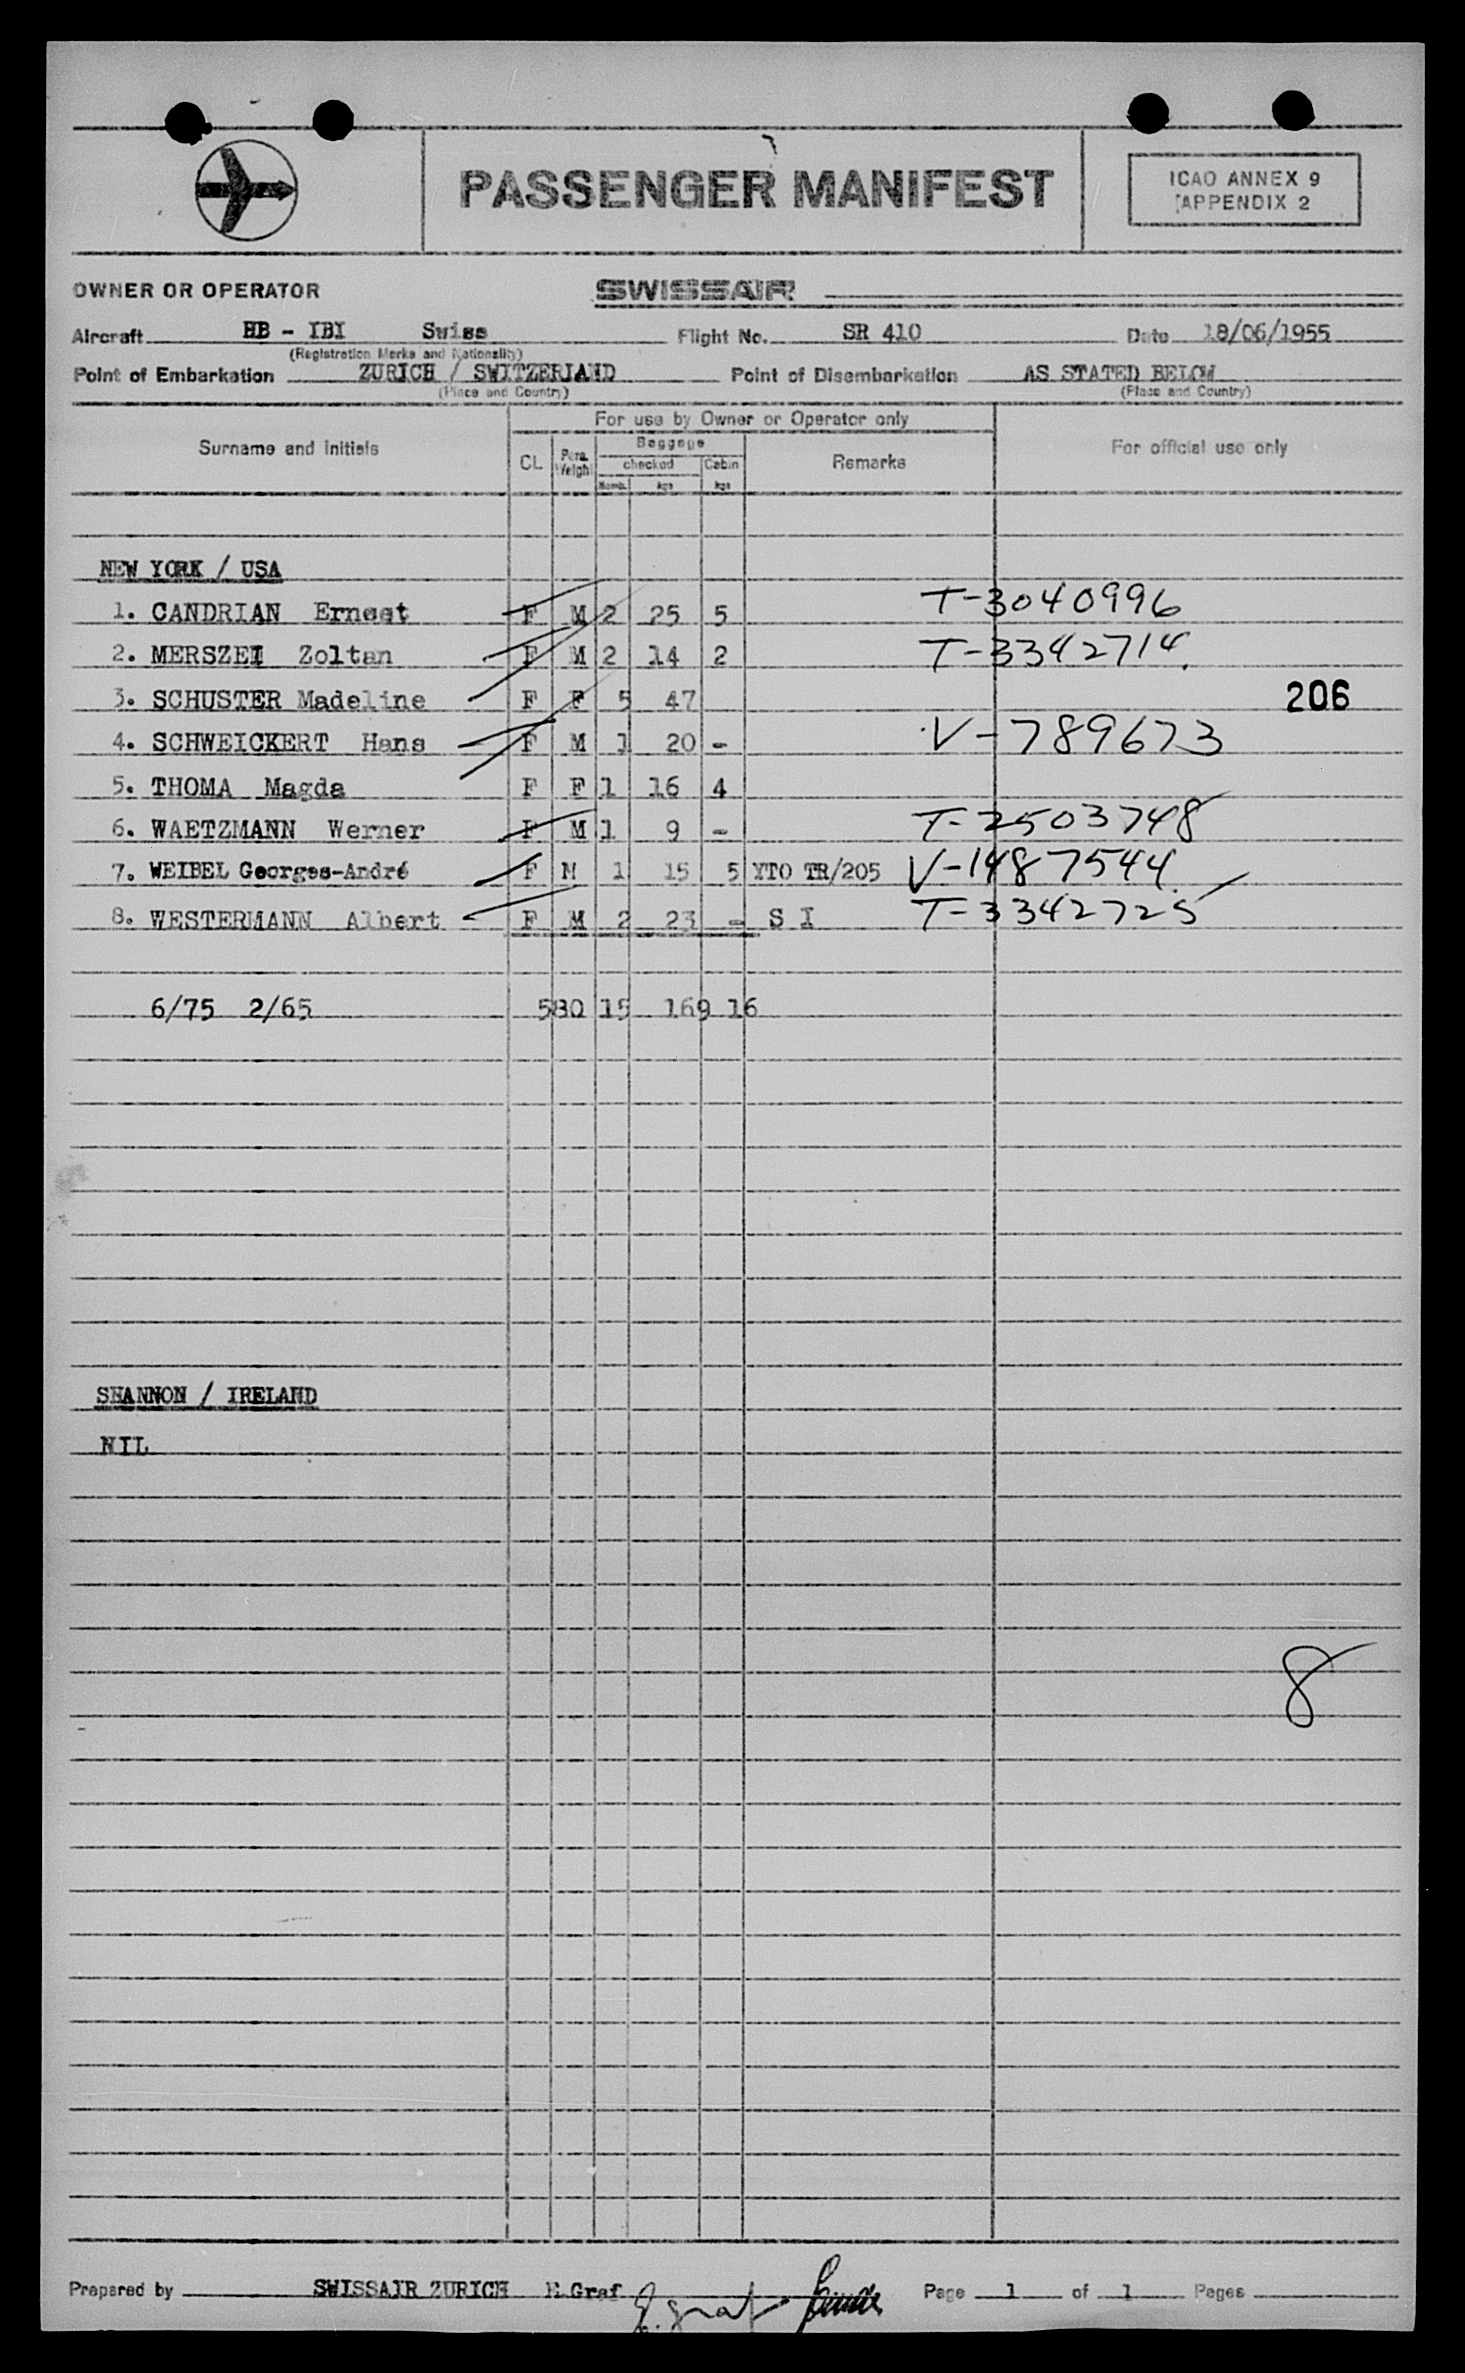 PASSENGER MANIFEST
ICAO ANNEX 9
APPENDIX 2
OWNER OR OPERATOR SWISSAIR
Aircraft HB - IBI Swiss Flight No. SR 410 Date 18/06/1955
(Registration Marks and Nationality)
Point of Embarkation ZURICH / SWITZERLAND Point of Disembarkation AS STATED BELOW
(Place and Country) (Place and Country)
For use by Owner or Operator only
Surname and initials CL Pers. Weight Baggage Remarks For official use only
checked Cabin
Numb. kgs kgs
NEW YORK / USA
1. CANDRIAN Ernest F M 2 25 5 T-3040996
2. MERSZEI Zoltan F M 2 14 2 T-3342714
3. SCHUSTER Madeline F F 5 47 206
4. SCHWEICKERT Hans F M 1 20 - V-789673
5. THOMA Magda F F 1 16 4
6. WAETZMANN Werner F M 1 9 - T-2503748
7. WEIBEL Georges-André F M 1 15 5 YTO TR/205 V-1487544
8. WESTERMANN Albert F M 2 23 - S I T-3342725
6/75 2/65 580 15 169 16
SHANNON / IRELAND
NIL
8
Prepared by SWISSAIR ZURICH E.Graf E. graf Page 1 of 1 Pages